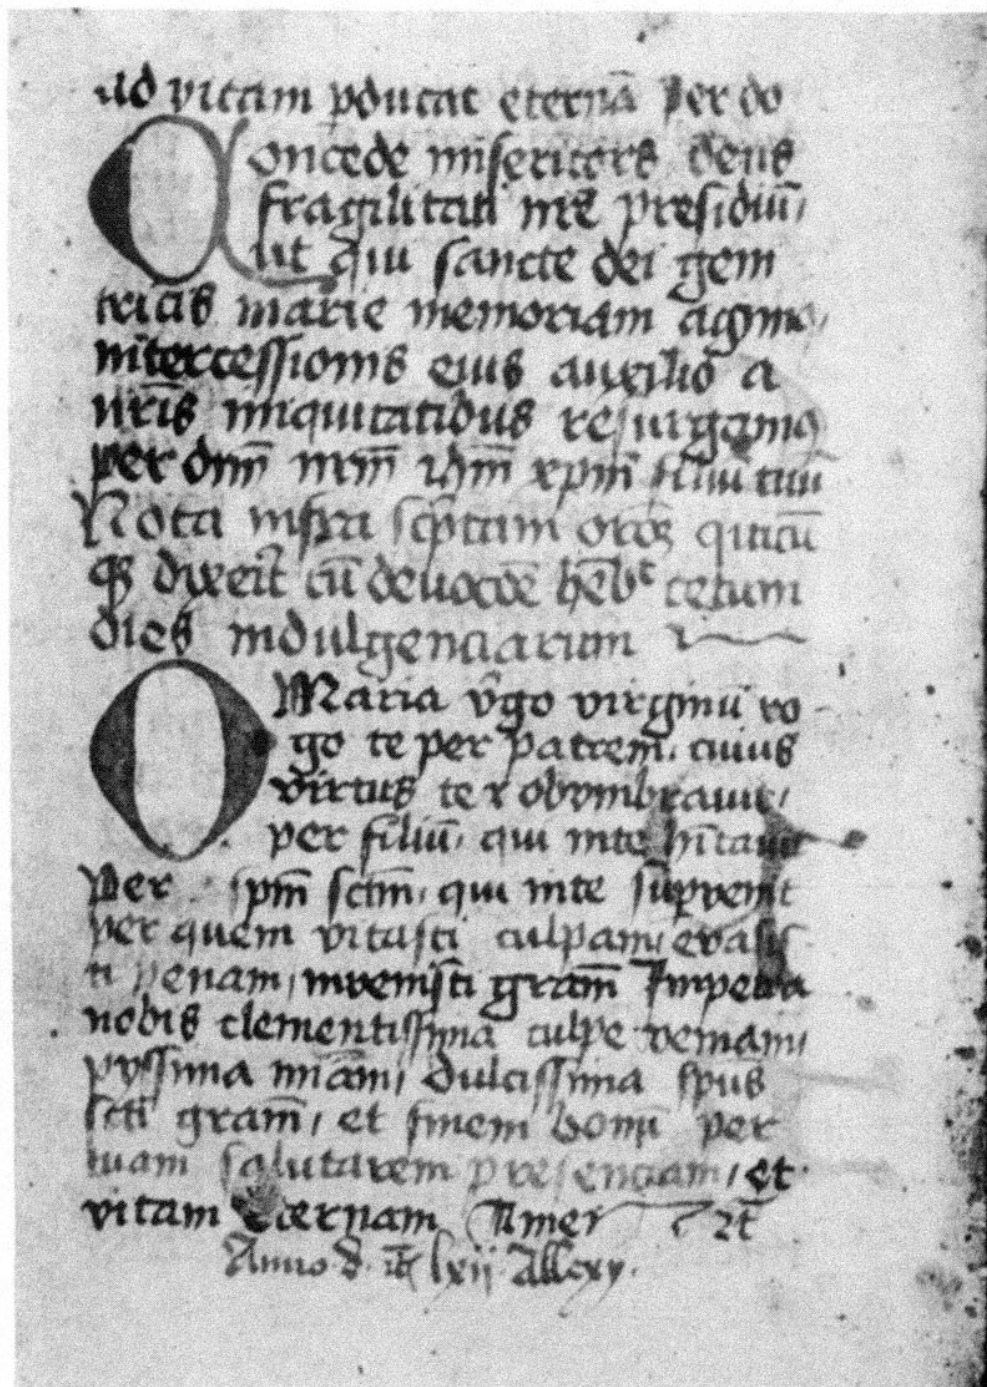 ad vitam pducat eternā Per do
Concede misericors deus
fragilitati nrē presidiū,
ut qui sancte dei geni
tricis marie memoriam agimꝰ,
intercessionis eius auxilio a
nrīs iniquitatibus resurgamꝰ
per dnm̄ nrm̄ ihm̄ xpm̄ filiū tuū
Nota infra scptam orōeꝫ quicū
qꝫ dixerit cū deuocōe hēbt cētum
dies indulgenciarum
O Maria vgo virginū ro
go te per patrem, cuius
virtus te obvmbrauit,
per filiū, qui inte hītauit
Per spm̄ sctm̄, qui inte supvenit
per quem vitasti culpam, evasis
ti penam, invenisti gram̄ Impetra
nobis clementissima culpe veniam,
pyssima miam̄, dulcissima spūs
sctī gram̄, et finem bonū per
tuam salutarem presenciam, et
vitam eternam Amen
Anno d lxii